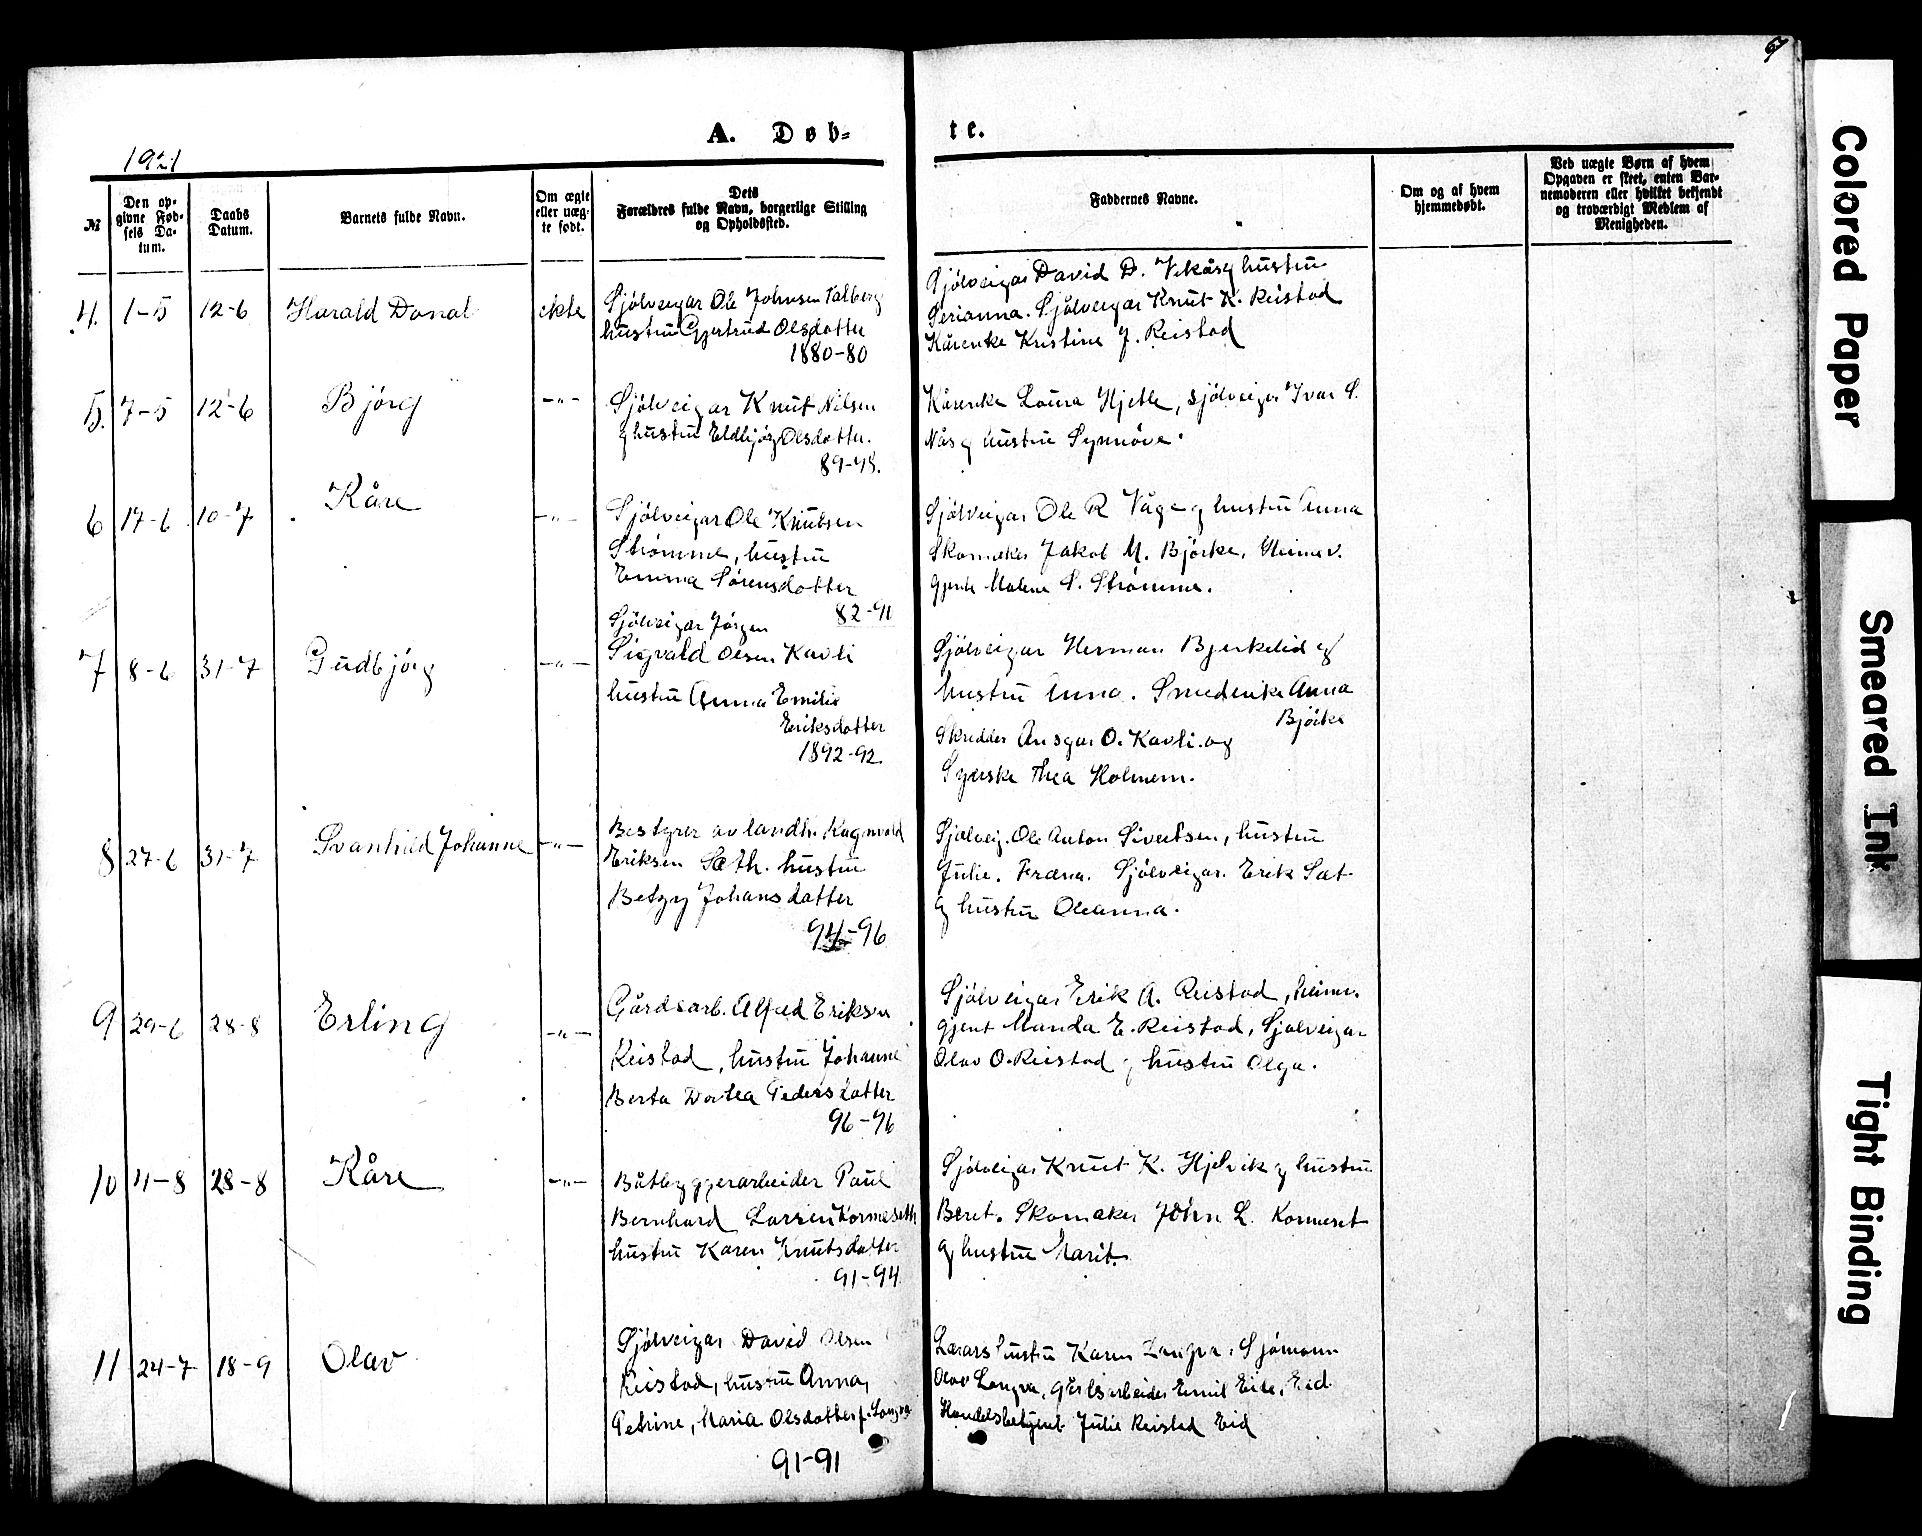 A. Døb=
te.
1921
№
Den op-
givne Fød-
sels Da-
tum.
Daabs
Datum.
Barnets fulde Navn.
Om ægte
eller uæg-
te født.
Dets
Forældres fulde Navn, borgerlige Stilling
og Opholdssted.
Faddernes Navne.
Om og af hvem
hjemmedøbt.
Ved uægte Børn af hvem
Opgaven er skeet, enten Bar-
nemoderen eller hvilket bekjendt
og troværdigt Medlem af
Menigheden.
4. 1-5 12-6 Harald Donat ekte
Sjölveigar Ole Johnsen Talberg
hustru Gjertrud Olsdotter
1880-80
Sjölveigar David D. Vekås og hustru
Serianna. Sjölveigar Knut K. Reistad
Kårenke Kristine J. Reistad
5. 7-5 12-6 Bjórg -"-
Sjölveigar Knut Nilsen
og hustru Eldbjórg Olsdotter.
89-98.
Kårenke Loura Hjelle, sjölveigar Ivar S.
Nås og hustru Synnóve.
6 17-6 10-7 Kåre -"-
Sjölveigar Ole Knutsen
Strómme, hustru
Emma Sórensdotter
82-91
Sjölveigar Ole R Våge og hustru Anna
Skomaker Jakob M. Björke, Heimev.
gjente Malene S. Strömme.
7 8-6 31-7 Gudbjórg -"-
Sjölveigar Jórgen
Sigvald Olsen Kavli
hustru Anna Emilie
Eriksdotter
1892-92.
Sjölveigar Herman Bjerkelid og
hustru Anna. Smedenke Anna
Björke
Skredder Ansgar O. Kavli og
Syerske Thea Holmem.
8 27-6 31-7 Svanhild Johanne -"-
Bestyrer av landh. Ragnvald
Eriksen Sæth. hustru
Betzy Johansdatter
94-96
Sjölveig. Ole Anton Sivertsen, hustru
Julie. Fræna. Sjölveigar. Erik Sæt
og hustru Oleanna.
9 29-6 28-8 Erling -"-
Gårdsarb. Alfred Eriksen
Reistad, hustru Johanne
Berta Dortea Pedersdatter
96-96
Sjölveigar Erik A. Reistad, heimv.
gjent Manda E. Reistad, Sjölveigar
Olav O. Reistad og hustru Olga.
10 4-8 28-8 Kåre -"-
Båtbyggerarbeider Paul
Bernhard Larsen Kormeseth
hustru Karen Knutsdatter
91-94
Sjölveigar Knut K. Hjelvik og hustru
Beret. Skomaker John L. Kormeset
og hustru Marit.
11 24-7 18-9 Olav
Sjölveigar David Olsen
Reistad, hustru Anna,
Petrine, Maria Olsdotter f. Longva
91-91
Lærars hustru Karen Longva, Sjómann
Olav Longva, gårdsarbeider Emil Eide, Eid
Handelsbetjent Julie Reistad Eid
Colored Paper
Smeared Ink
Tight Binding